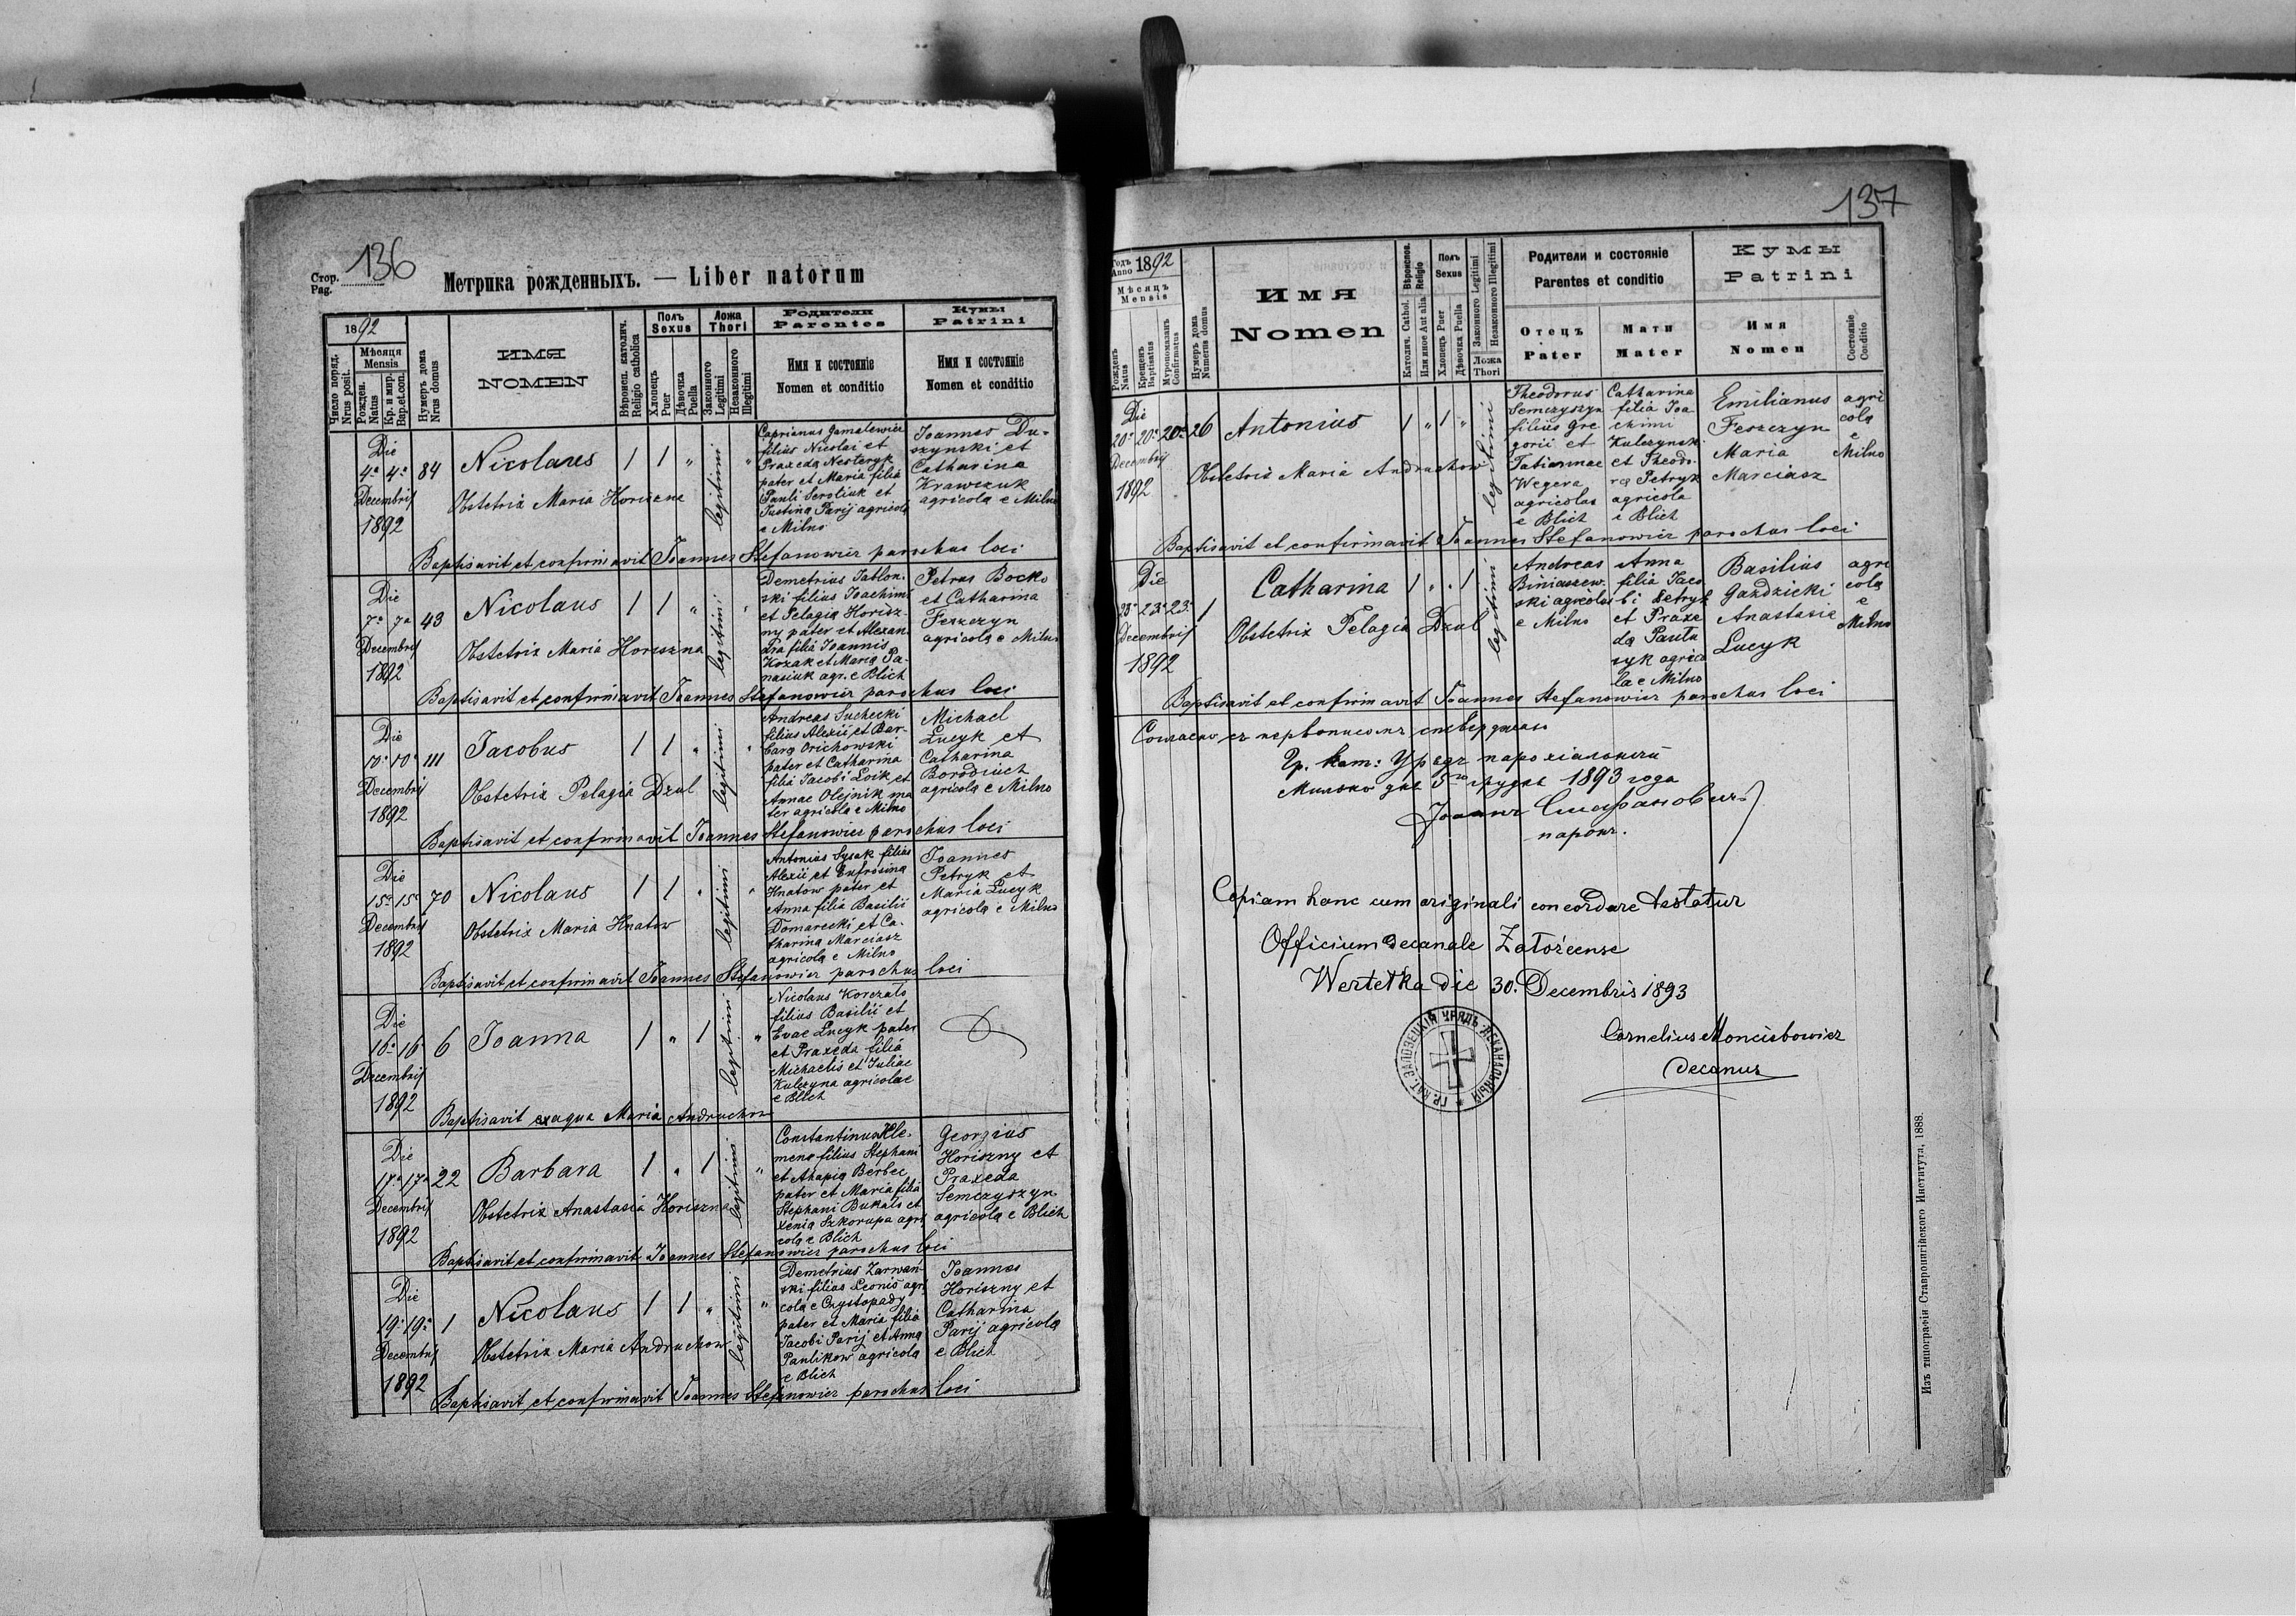 Стор.
Pag. 136
Метрика рожденныхъ. — Liber natorum
1892
Число поряд.
Nrus posit.
Мѣсяця
Mensis
Рожден.
Natus
Кр. и мир.
Bap. et con.
Нумеръ дома
Nrus domus
ИМЯ
NOMEN
Вѣроисп. католич.
Religio catholica
Полъ
Sexus
Хлопецъ
Puer
Дѣвочка
Puella
Ложа
Thori
Законного
Legitimi
Незаконного
Illegitimi
Родители
Parentes
Имя и состояніе
Nomen et conditio
Кумы
Patrini
Имя и состояніе
Nomen et conditio
Die
4a 4a 84 Nicolaus 1 1 " legitimi "
Decembris
1892
Obstetrix Maria Horiszna
Cyprianus Gamalewicz
filius Nicolai et
Praxeda Nesteryk
pater et Maria filia
Pauli Serotiuk et
Justina Parij agricola
e Milno
Joannes Du-
szynski et
Catharina
Krawczuk
agricola e Milno
Baptisavit et confirmavit Joannes Stefanowicz parochus loci
Die
7a 7a 43 Nicolaus 1 1 " legitimi "
Decembris
1892
Obstetrix Maria Horiszna
Demetrius Jablon-
ski filius Joachimi
et Pelagia Horisz-
ny pater et Alexan-
dra filia Joannis
Kozak et Maria Pa-
nasiuk agr. e Blich
Petrus Bocko
et Catharina
Feszczyn
agricola e Milno
Baptisavit et confirmavit Joannes Stefanowicz parochus loci
Die
10a 10a 111 Jacobus 1 1 " legitimi "
Decembris
1892
Obstetrix Pelagia Dzul
Andreas Suchecki
filius Alexii et Bar-
bara Orichowski
pater et Catharina
filia Jacobi Loik et
Annae Olejnik ma
ter agricola e Milno
Michael
Lucyk et
Catharina
Borodiuch
agricola e Milno
Baptisavit et confirmavit Joannes Stefanowicz parochus loci
Die
15a 15a 70 Nicolaus 1 1 " legitimi "
Decembris
1892
Obstetrix Maria Hnatow
Antonius Sysak filius
Alexii et Eufrosina
Hnatow pater et
Anna filia Basilii
Domarecki et Ca-
tharina Marciasz
agricola e Milno
Joannes
Petryk et
Maria Lucyk
agricola e Milno
Baptisavit et confirmavit Joannes Stefanowicz parochus loci
Die
16a 16a 6 Joanna 1 " 1 legitimi "
Decembris
1892
Nicolaus Korczało
filius Basilii et
Evae Lucyk pater
et Praxeda filia
Michaelis et Juliae
Kulczyna agricolae
e Blich
Baptisavit ex aqua Maria Andruchow
Die
17a 17a 22 Barbara 1 " 1 legitimi "
Decembris
1892
Obstetrix Anastasia Horiszna
Constantinus Kle-
mens filius Stephani
et Ahapia Berbec
pater et Maria filia
Stephani Bukało et
Xenia Szkorupa agri
cola e Blich
Georgius
Horiszny et
Praxeda
Semczyszyn
agricola e Blich
Baptisavit et confirmavit Joannes Stefanowicz parochus loci
Die
19a 19a 1 Nicolaus 1 1 " legitimi "
Decembris
1892
Obstetrix Maria Andruchow
Demetrius Zarwań-
ski filius Leonis agri
cola e Czystopady
pater et Maria filia
Jacobi Parij et Anna
Pawlikow agricola
e Blich
Joannes
Horiszny et
Catharina
Parij agricola
e Blich
Baptisavit et confirmavit Joannes Stefanowicz parochus loci
137
Годъ
Anno 1892
Мѣсяцъ
Mensis
Рожденъ
Natus
Крещенъ
Baptisatus
Муропомазанъ
Confirmatus
Нумеръ дома
Numerus domus
Имя
Nomen
Вѣроиспов.
Religio
Католич. Cathol.
Или иное Aut alia
Полъ
Sexus
Хлопецъ Puer
Дѣвочка Puella
Законного Legitimi
Незаконного Illegitimi
Ложа
Thori
Родители и состояніе
Parentes et conditio
Отецъ
Pater
Мати
Mater
Кумы
Patrini
Имя
Nomen
Состояніе
Conditio
Die
20a 20a 20a 26 Antonius 1 " 1 " legitimi
Decembris
1892
Obstetrix Maria Andruchow
Theodorus
Semczyszyn
filius Gre
gorii et
Tatiannae
Wegera
agricolae
e Blich
Catharina
filia Joa
chimi
Kulczynski
et Theodo-
ra Petryk
agricola
e Blich
Emilianus
Feszczyn
Maria
Marciasz
agri
cola
e
Milno
Baptisavit et confirmavit Joannes Stefanowicz parochus loci
Die
23a 23a 23a 1 Catharina 1 " " 1 legitimi
Decembris
1892
Obstetrix Pelagia Dzul
Andreas
Biniaszew-
ski agricola
e Milno
Anna
filia Jaco
bi Petryk
et Praxe
da Pauta
syk agrico
la e Milno
Basilius
Gazdzicki
Anastasia
Lucyk
agri
cola
e
Milno
Baptisavit et confirmavit Joannes Stefanowicz parochus loci
Согласно съ первописомъ стверджаю
Гр. кат: Урядъ парохіальный
Мильно дня 5го грудня 1893 года
Іоаннъ Стефановичъ
парохъ.
Copiam hanc cum originali concordare testatur
Officium decanale Załoźcense
Wertełka die 30. Decembris 1893
Cornelius Moncibowicz
decanus
ГР. КАТ. ЗАЛОЗЕЦКІЙ УРЯДЪ ДЕКАНАЛЬНЫЙ
Изъ типографіи Ставропигійского Института, 1888.